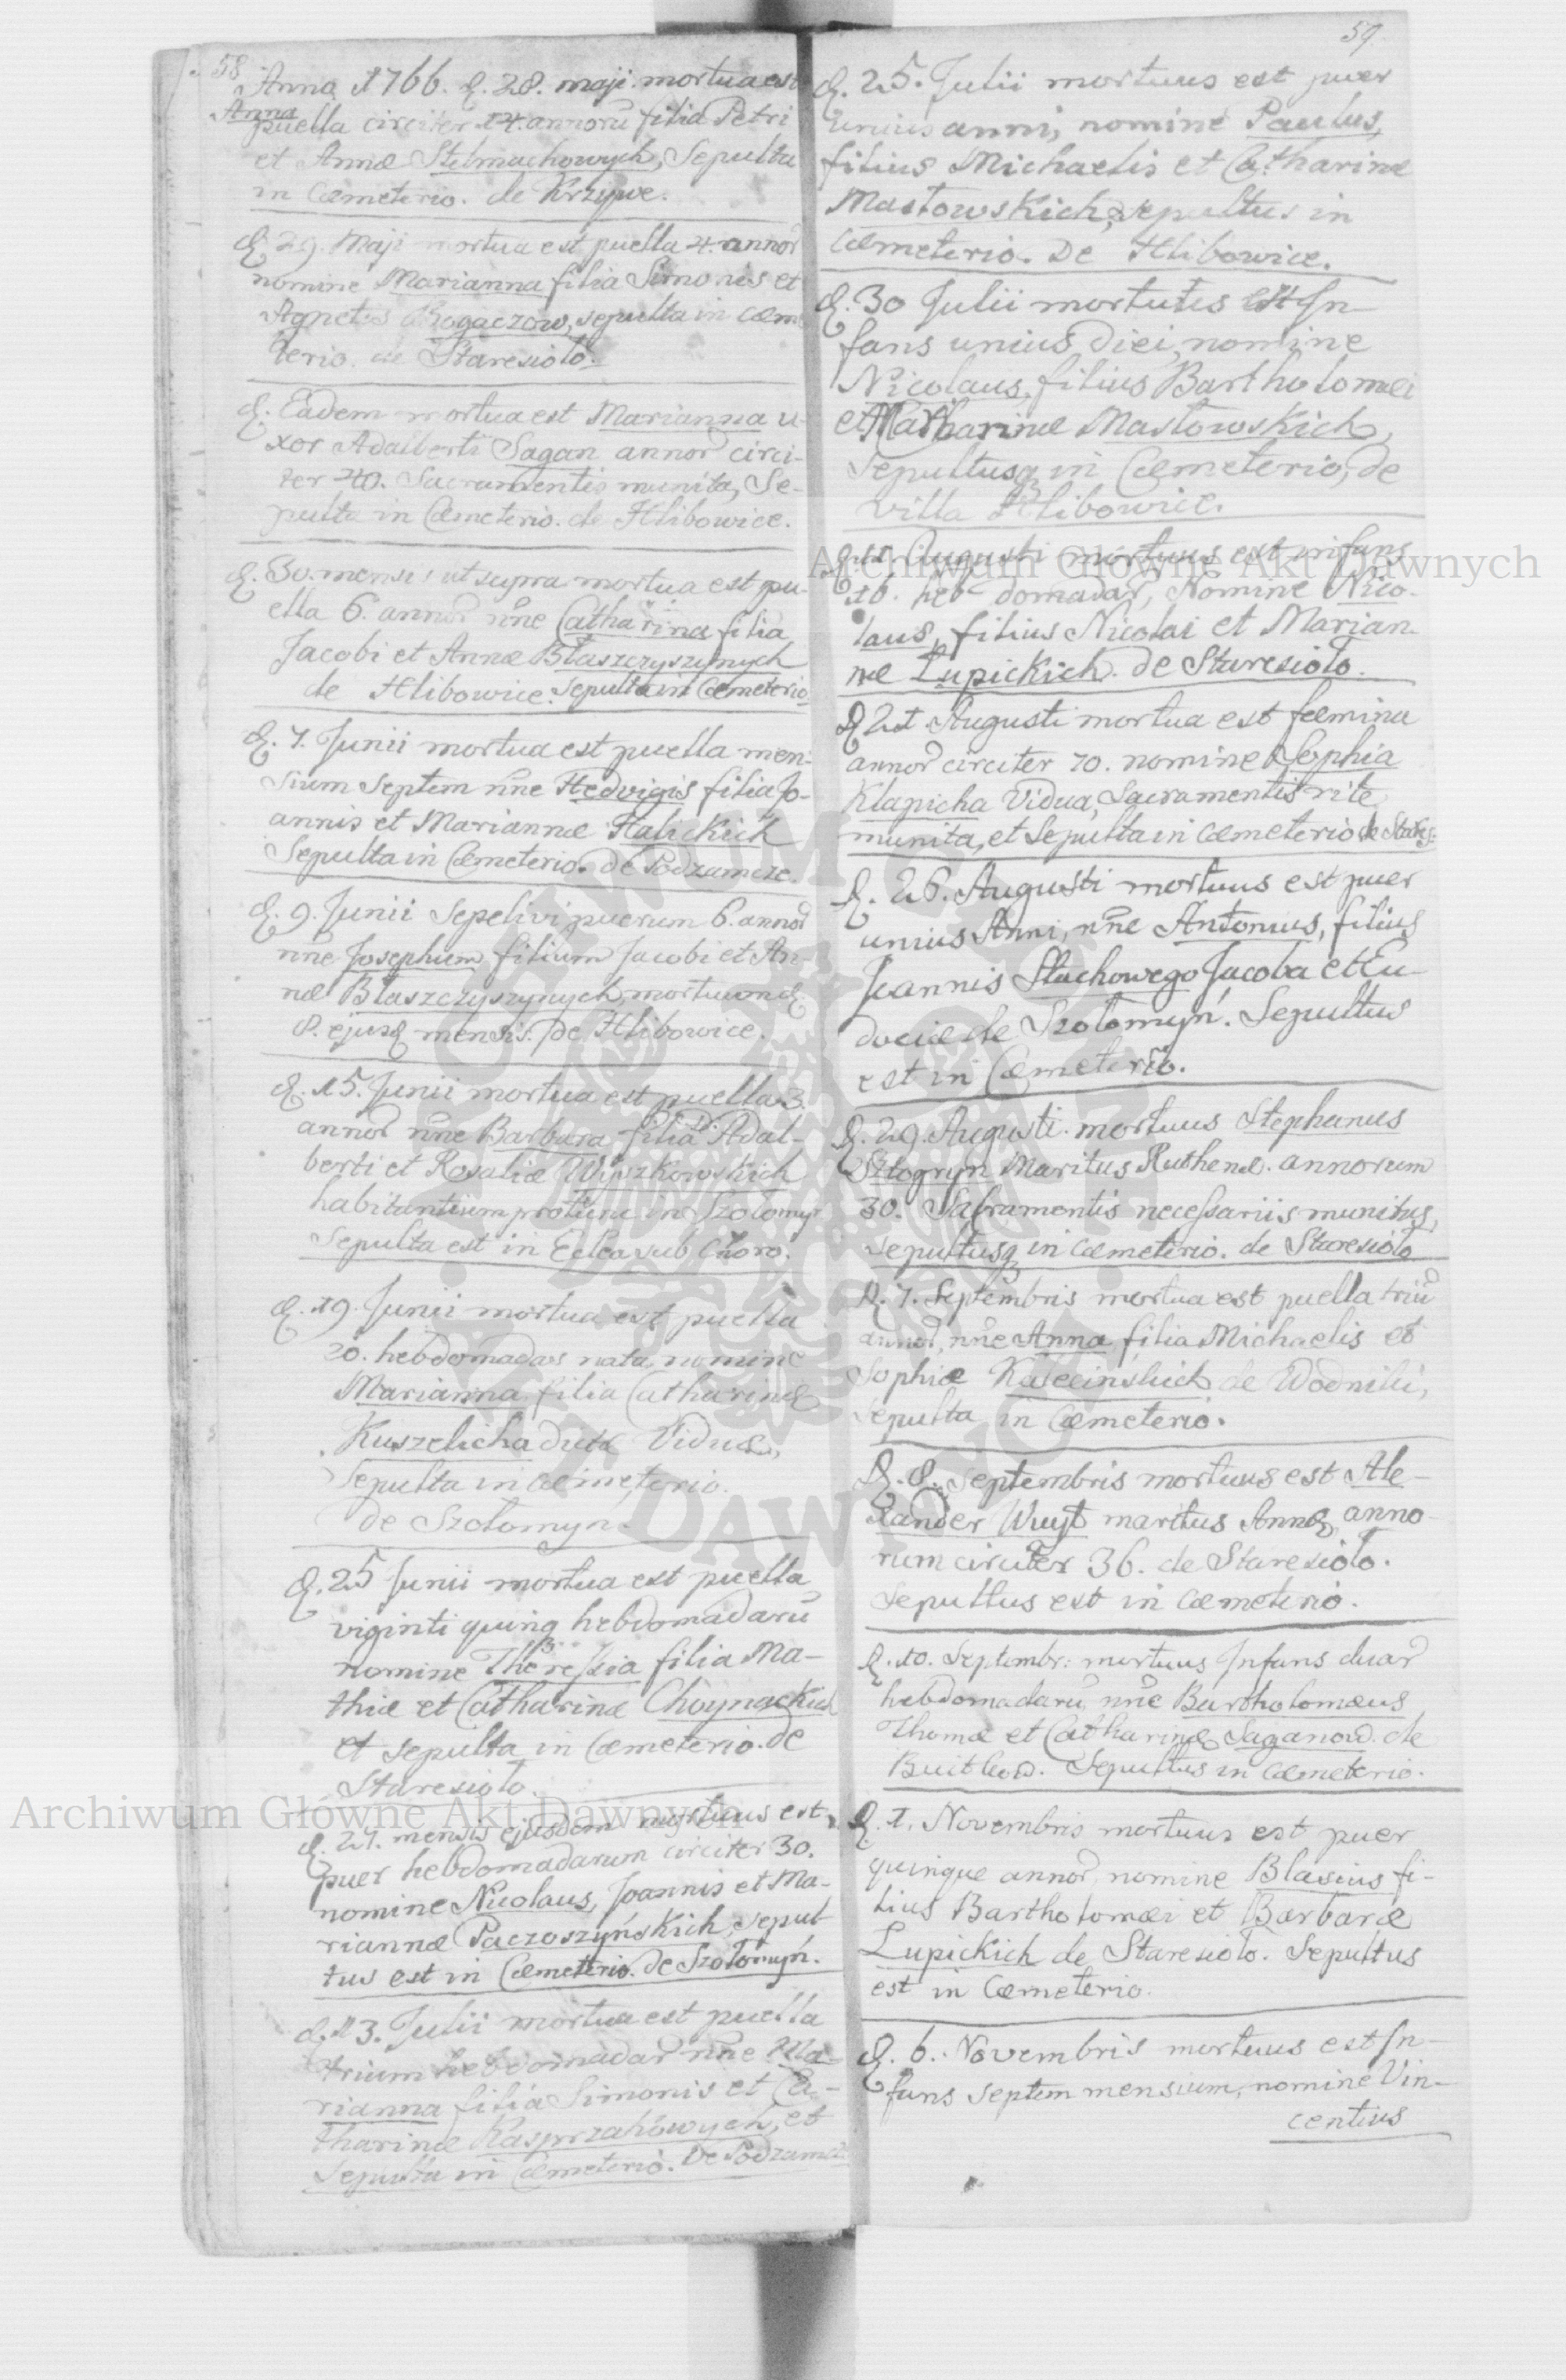 58
Anno 1766. d. 28. maji mortua est
Anna
puella circiter 14. annorũ filia Petri
et Annæ Stelmachowych, Sepulta
in Cæmeterio. de Krzywe.
d. 29. Maji mortua est puella 4. annor
nomine Marianna filia Simonis et
Agnetis Bogaczow, sepulta in cæme
terio. de Staresioło.
d. Eadem mortua est Marianna u-
xor Adalberti Sagan annor circi-
ter 40. Sacramentis munita, Se-
pulta in Cæmeterio. de Hlibowice.
d. 30. mensis ut supra mortua est pu-
ella 6. annor nñe Catharina filia
Jacobi et Annæ Błaszczyszynych
de Hlibowice. Sepulta in Cæmeterio
d. 7. Junii mortua est puella men-
sium Septem nñe Hedvigis filia Jo-
annis et Mariannæ Halickich
Sepulta in Cæmeterio. de Podzamcze.
d. 9. Junii Sepelivi puerum 6. annor
nñe Josephum filium Jacobi et An-
næ Błaszczyszynych, mortuum d.
8. ejusq mensis. de Hlibowice.
d. 15. Junii mortua est puella 3.
annor nñe Barbara filia Adal-
berti et Rosaliæ Wiszkowskich
habitantium pro tunc in Szołomyi
Sepulta est in Eclea sub Choro.
d. 19. Junii mortua est puella
20. hebdomadas nata, nomine
Marianna filia Catharinæ
Kuszelicha Viduæ,
Sepulta in cæmeterio
de Szołomyn.
d. 25 Junii mortua est puella
viginti quinq hebdomadarũ
nomine Theressia filia Ma-
thiæ et Catharinæ Choynackich
et sepulta in Cæmeterio. de
Staresioło.
d. 27. mensis ejusdem mortuus est
puer hebdomadarum circiter 30.
nomine Nicolaus, Joannis et Ma-
riannæ Paczoszyńskich, sepul
tus est in Cæmeterio. de Szołomyń.
d. 13. Julii mortua est puella
trium hebdomadar nñe Ma-
rianna filia Simonis et Ca-
tharinæ Kasprzakowych, et
Sepulta in Cæmeterio. de Podzamcz.
59
d. 25. Julii mortuus est puer
unius anni, nomine Paulus,
filius Michaelis et Catharinæ
Masłowskich, sepultus in
Cæmeterio. De Hlibowice.
d. 30 Julii mortuus est In
fans unius diei, nomine
Nicolaus, filius Bartholomæi
et Catharinæ Masłowskich,
Sepultusq in Cæmeterio, de
villa Hlibowice.
Augusti mortuus est infans
16. heb domadar, Nomine Nico-
laus, filius Nicolai et Marian-
næ Łupickich. de Staresioło.
d 21. Augusti mortua est fæmina
annor circiter 70. nomine Sophia
Klapicha Vidua, Sacramentis rite
munita, et Sepulta in cæmeterio de Stares:
d. 26. Augusti mortuus est puer
unius Anni, nñe Antonius, filius
Joannis Stachowego Jacoba et Eu-
dociæ de Szołomyń. Sepultus
est in Cæmeterio.
d. 29. Augusti. mortuus Stephanus
Sztogryn Maritus Ruthenæ. annorum
30. Sacramentis necessariis munitus,
Sepultusq in cæmeterio. de Staresioło
d. 7. Septembris mortua est puella triũ
annor, nñe Anna filia Michaelis et
Sophiæ Kaleeinskich de Wodniki,
sepulta in Cæmeterio.
d. 8. Septembris mortuus est Ale-
xander Wuyt maritus Annæ, anno-
rum circiter 36. de Staresioło.
Sepultus est in cæmeterio.
d. 10. Septembr: mortuus Infans duar
hebdomadarũ, nñe Bartholomæus
Thomæ et Catharinæ Saganow. de
Sepultus in cæmeterio.
d. 1. Novembris mortuus est puer
quinque annor, nomine Blasius fi-
lius Bartholomæi et Barbaræ
Łupickich de Staresioło. Sepultus
est in Cæmeterio.
d. 6. Novembris mortuus est In-
fans septem mensium, nomine Vin-
centius
Archiwum Główne Akt Dawnych
Archiwum Główne Akt Dawnych
ARCHIWUM GŁÓWNE AKT DAWNYCH